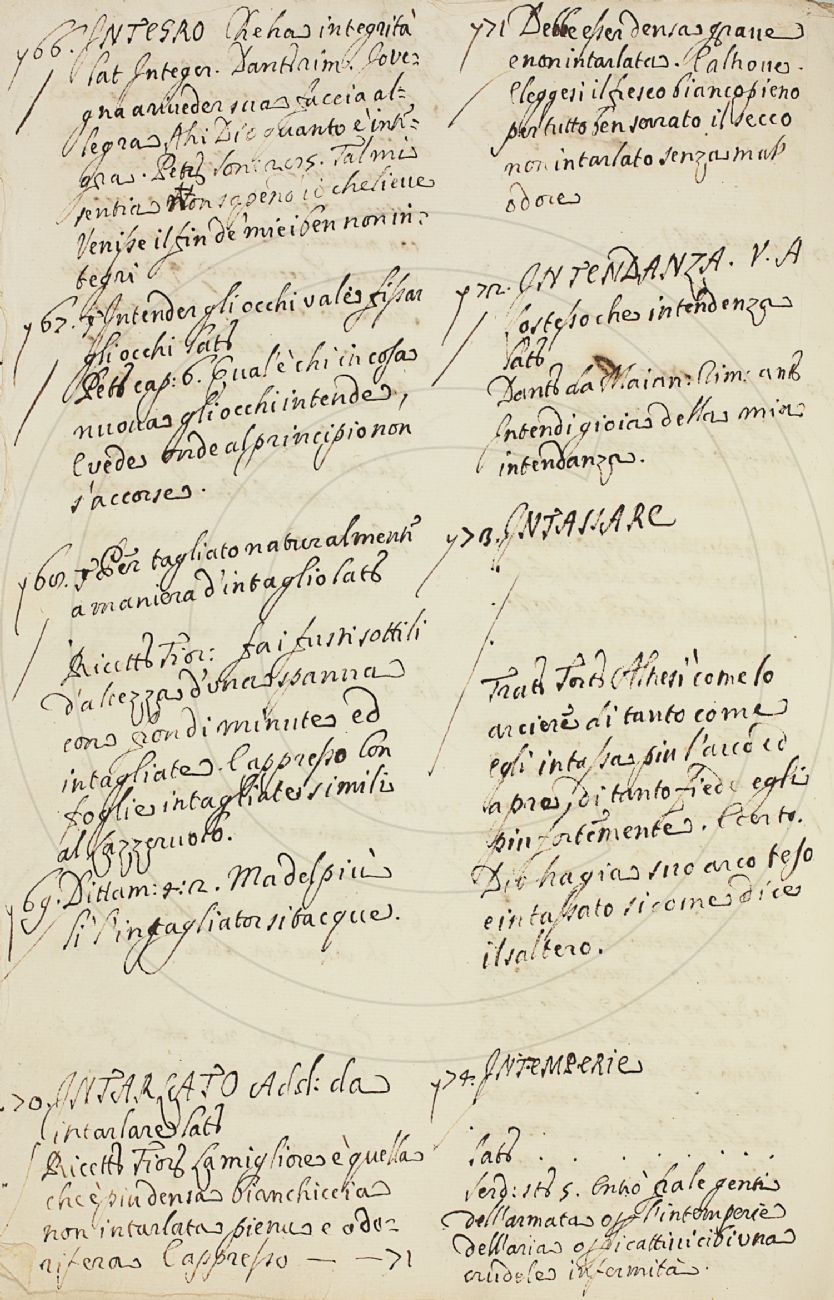 766. INTEGRO Che ha integrità
lat Integer. Dant rim. Jove-
gna a riveder sua faccia al-
legra Ahi Dio quanto è inte-
gra. Petr son: Tal mi
sentia non sapend io che lieve
Venisse il fin de' miei ben non in-
tegri
767. § Intender gli occhi vale fissar
gli occhi lat
Petr cap: 6. Qual'è chi in cosa
nuova gli occhi intende,
E vede onde al principio non
s'accorse.
768. § Per tagliato naturalment
a maniera d'intaglio lat
Ricett Fior: fa i fusti sottili
d'altezza d'una spanna
con frondi minute ed
intagliate. E appresso con
foglie intagliate simili
al lazzeruolo.
769. Dittam: 4: 2. Ma del più
lì l'intagliator si tacque.
770. INTARLATO Add: da
intarlare lat
Ricett Fior La migliore è quella
che è piu densa bianchiccia
non intarlata piena e odo-
rifera E appresso — — 71
771 Debbe esser densa grave
e non intarlata. E altrove.
Eleggesi il fresco bianco pieno
per tutto ben serrato il secco
non intarlato senza mal
odore
772. INTENDANZA. V. A
Lo stesso che intendenza
lat
Dant da Maian: Rim: ant
Intendi gioia della mia
intendanza.
773. INTASSARE
Tratt Fort Altresì come lo
arciere di tanto come
egli intassa piu l'arco ed
apre, di tanto fiede egli
piu fortemente. E certo.
Dio hagia suo arco teso
e intassato si come dice
il saltero.
774. INTEMPERIE
lat . . . . . . .
Serd: st 5. Entrò fra le genti
dell'armata o p l'intemperie
dell'aria o p i cattivi cibi una
crudele infermità.